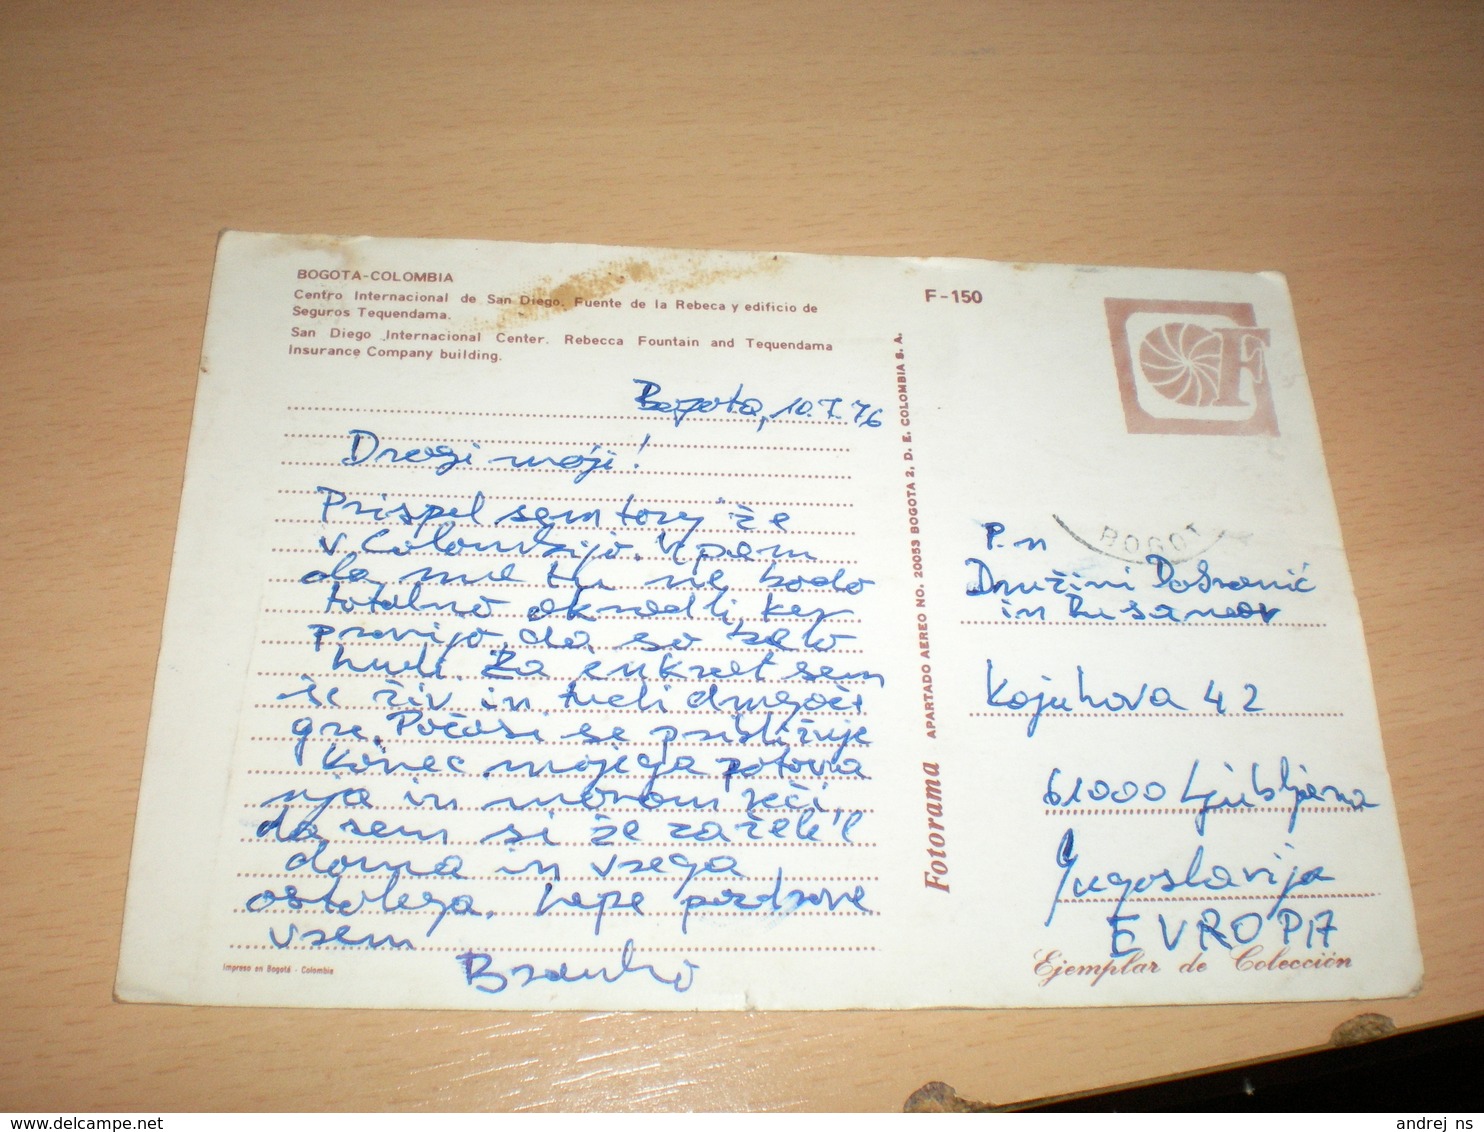 BOGOTA-COLOMBIA
Centro Internacional de San Diego. Fuente de la Rebeca y edificio de
Seguros Tequendama.
San Diego Internacional Center. Rebecca Fountain and Tequendama
Insurance Company building.
Bogota, 10.7.76
Dragi moji!
Prispel sem torej že
v Colombijo. Upam
da me tu ne bodo
totalno okradli, ker
pravijo, da so zelo
hudi. Za enkrat sem
še živ in tudi drugače
gre. Počasi se približuje
konec mojega potova
nja in moram reči,
da sem si že zaželel
doma in vsega
ostalega. Lepe pozdrave
vsem
Branko
Impreso en Bogotá - Colombia
Fotorama APARTADO AEREO NO. 20053 BOGOTA 2, D. E. COLOMBIA S. A.
F-150
F
BOGOT
P.n
Družini Dobranić
in
Kojuhova 42
61000 Ljubljana
Jugoslavija
EVROPA
Ejemplar de Colección
andrej ns
delcampe.net